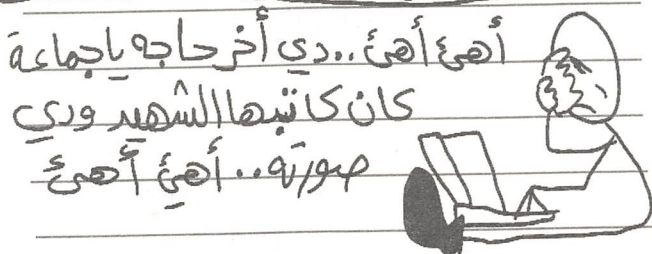 أهئ أهئ..دي أخر حاجه ياجماعة
كان كاتبها الشهيد ودي
صورته.. أهئ أهئ